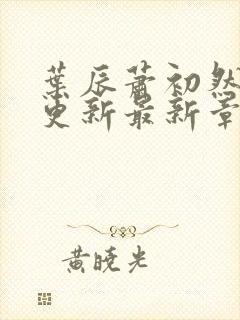 葉辰蕭初然
更新最新章
黃曉光